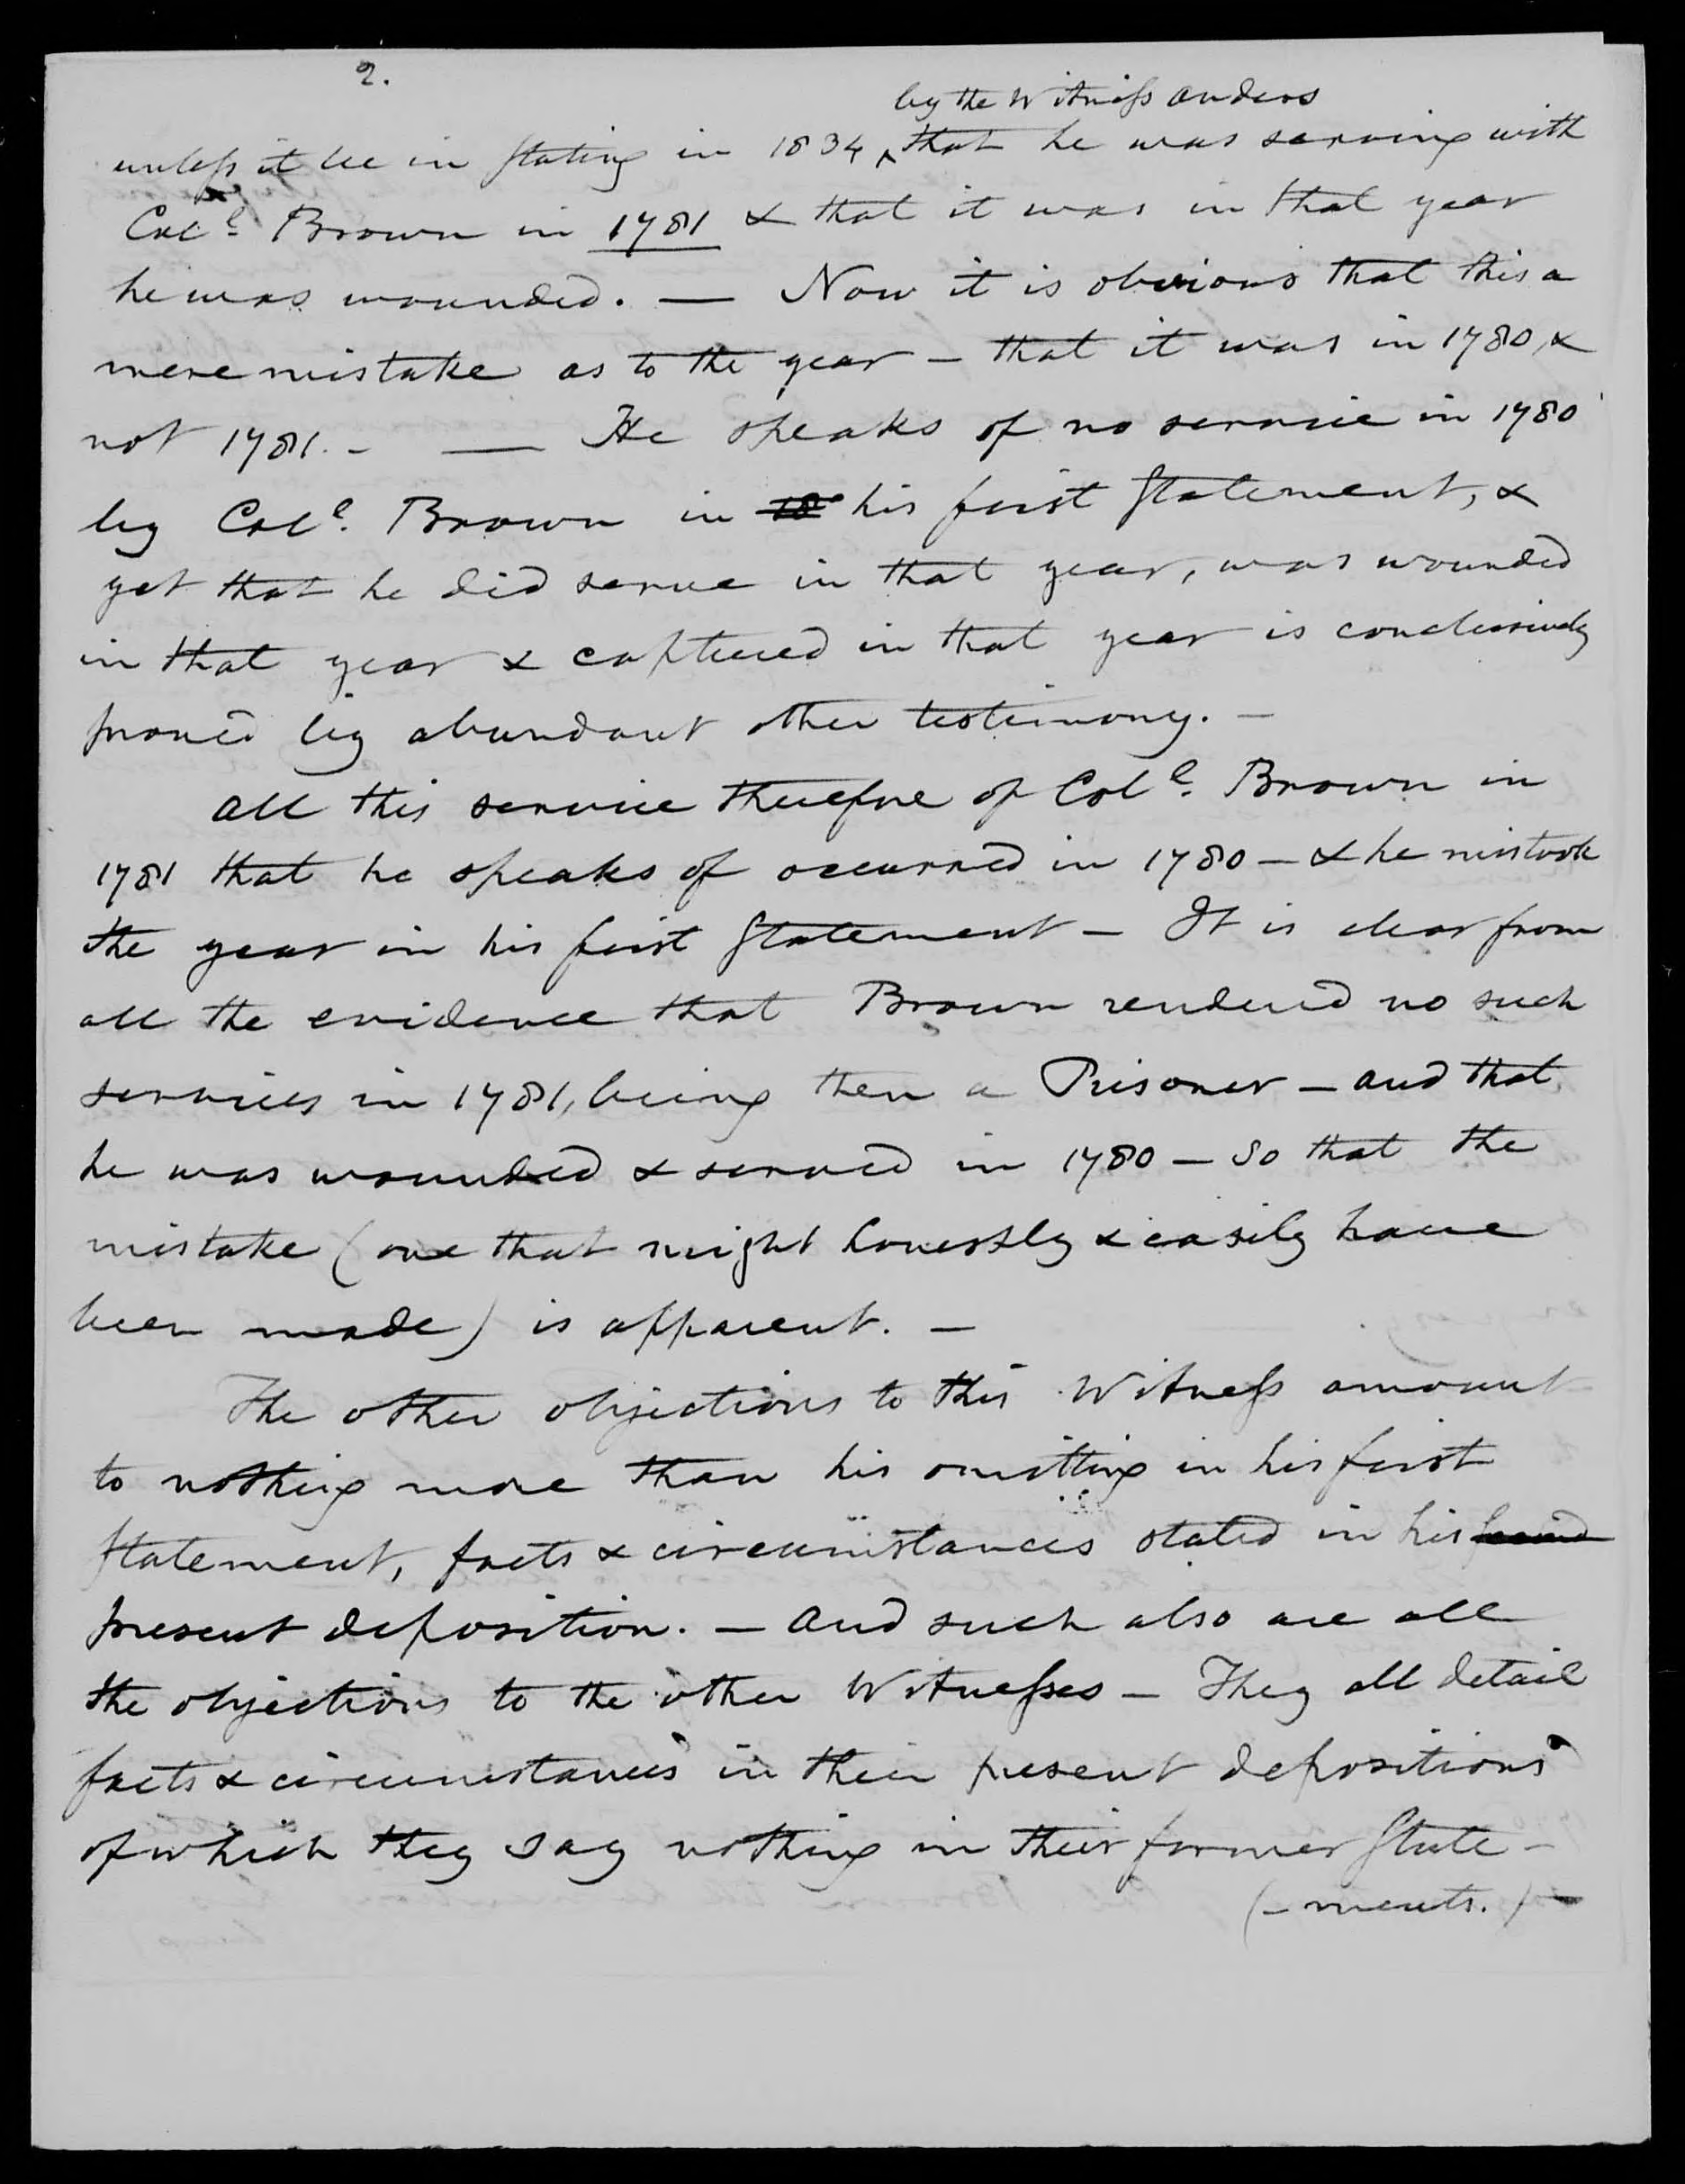 2.
by the Witness Anders
unless it be in stating in 1834 ^ that he was serving with
Col^l. Brown in 1781 & that it was in that year
he was wounded. — Now it is obvious that this a
mere mistake as to the year – that it was in 1780, &
not 1781. – — He speaks of no service in 1780
by Col^l. Brown in 18 his first statement, &
yet that he did serve in that year, was wounded
in that year & captured in that year is conclusively
proved by abundant other testimony. –
All this service therefore of Col^l. Brown in
1781 that he speaks of occurred in 1780 – & he mistook
the year in his first statement – It is clear from
all the evidence that Brown rendered no such
services in 1781, being then a Prisoner – and that
he was wounded & served in 1780 – So that the
mistake (one that might honestly & easily have
been made) is apparent. –
The other objections to this Witness amount
to nothing more than his omitting in his first
statement, facts & circumstances stated in his
present deposition. – And such also are all
the objections to the other Witnesses – They all detail
facts & circumstances in their present depositions
of which they say nothing in their former State-
(-ments.) –